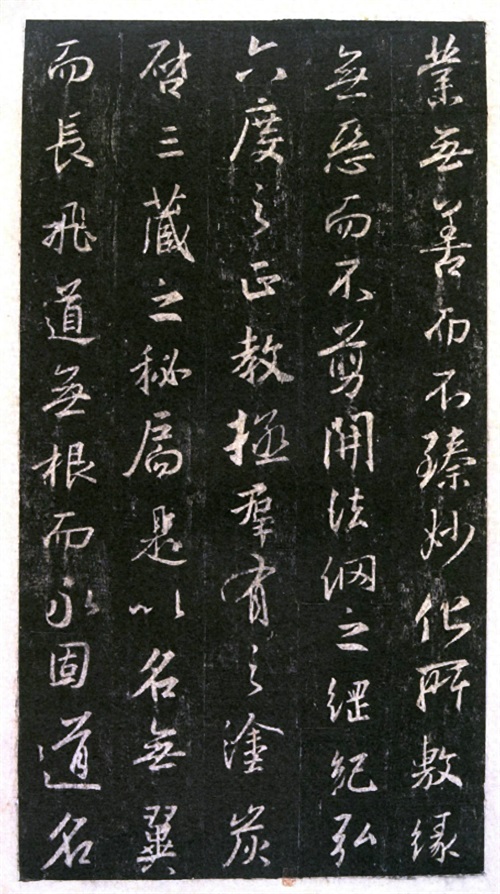 業無善而不臻妙化所敷緣
無惡而不剪開法網之綱紀弘
六度之正教拯羣有之塗炭
啓三藏之秘扃是以名無翼
而長飛道無根而永固道名